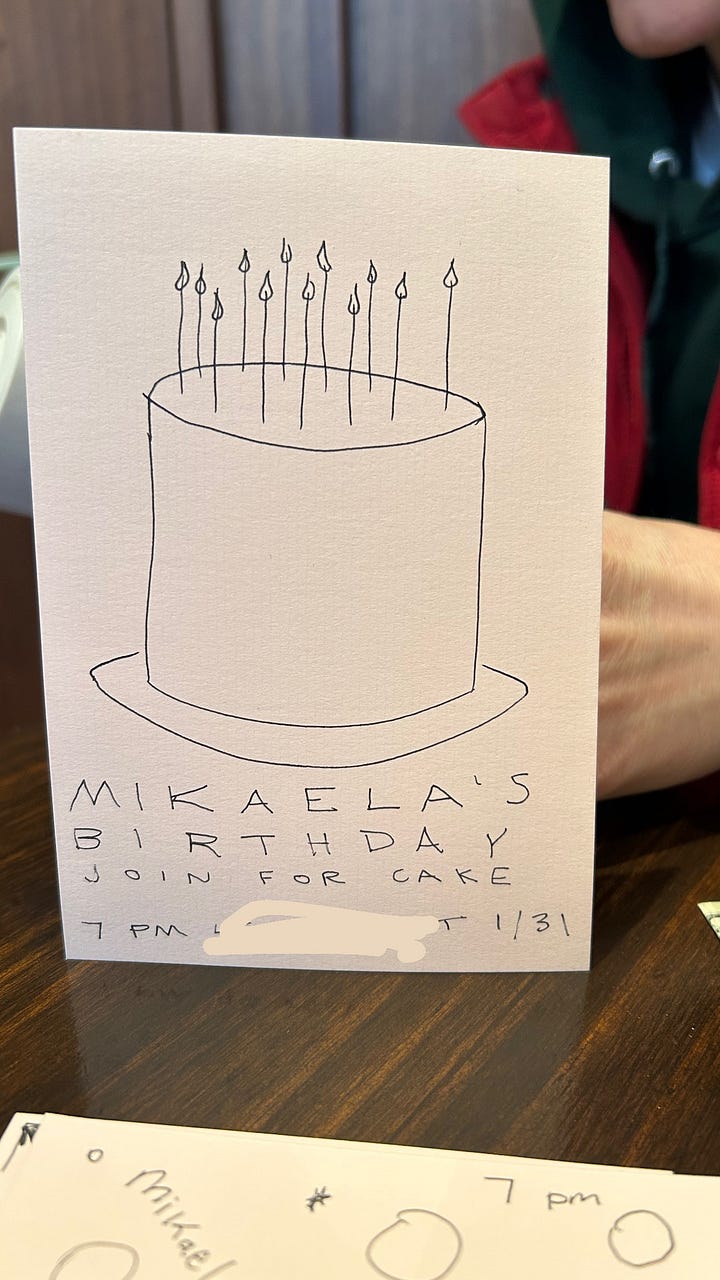 MIKAELA'S
BIRTHDAY
JOIN FOR CAKE
7 PM 1/31
Mikael
* 7 pm